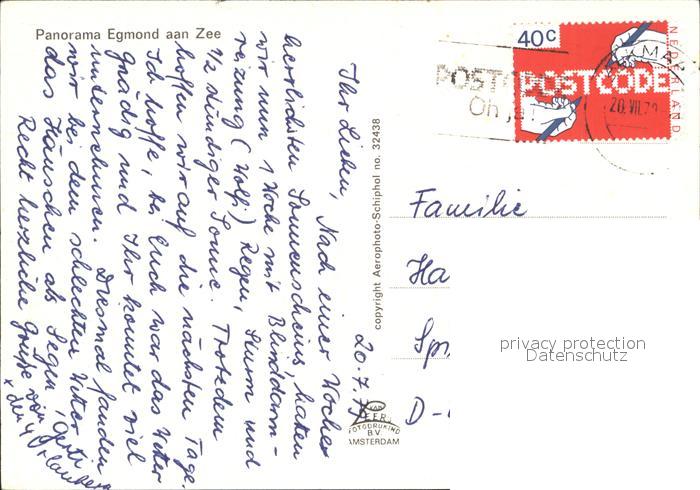 Panorama Egmond aan Zee
20.7.78
Ihr Lieben, Nach einer Woche
herrlichsten Sonnenscheins, hatten
wir nun 1 Woche mit Blinddarm-
reizung (Wolf.) Regen, Sturm und
1/2 stündiger Sonne. Trotzdem
hoffen wir auf die nächsten Tage.
Ich hoffe, bei Euch war das Wetter
gnädig und Ihr konntet viel
unternehmen. Diesmal fanden
wir bei dem schlechten Wetter
das Häuschen als Segen.
Recht herzliche Grüße von Gerti
x den 4 Urlaubern
copyright Aerophoto-Schiphol no. 32438
VAN
LEER
FOTODRUKIND
B.V.
AMSTERDAM
40c
NEDERLAND
POSTCODE
POSTCODE
Oh ja
ALKMAAR
20.VII.78
Familie
Ha
Sp
D-
privacy protection
Datenschutz